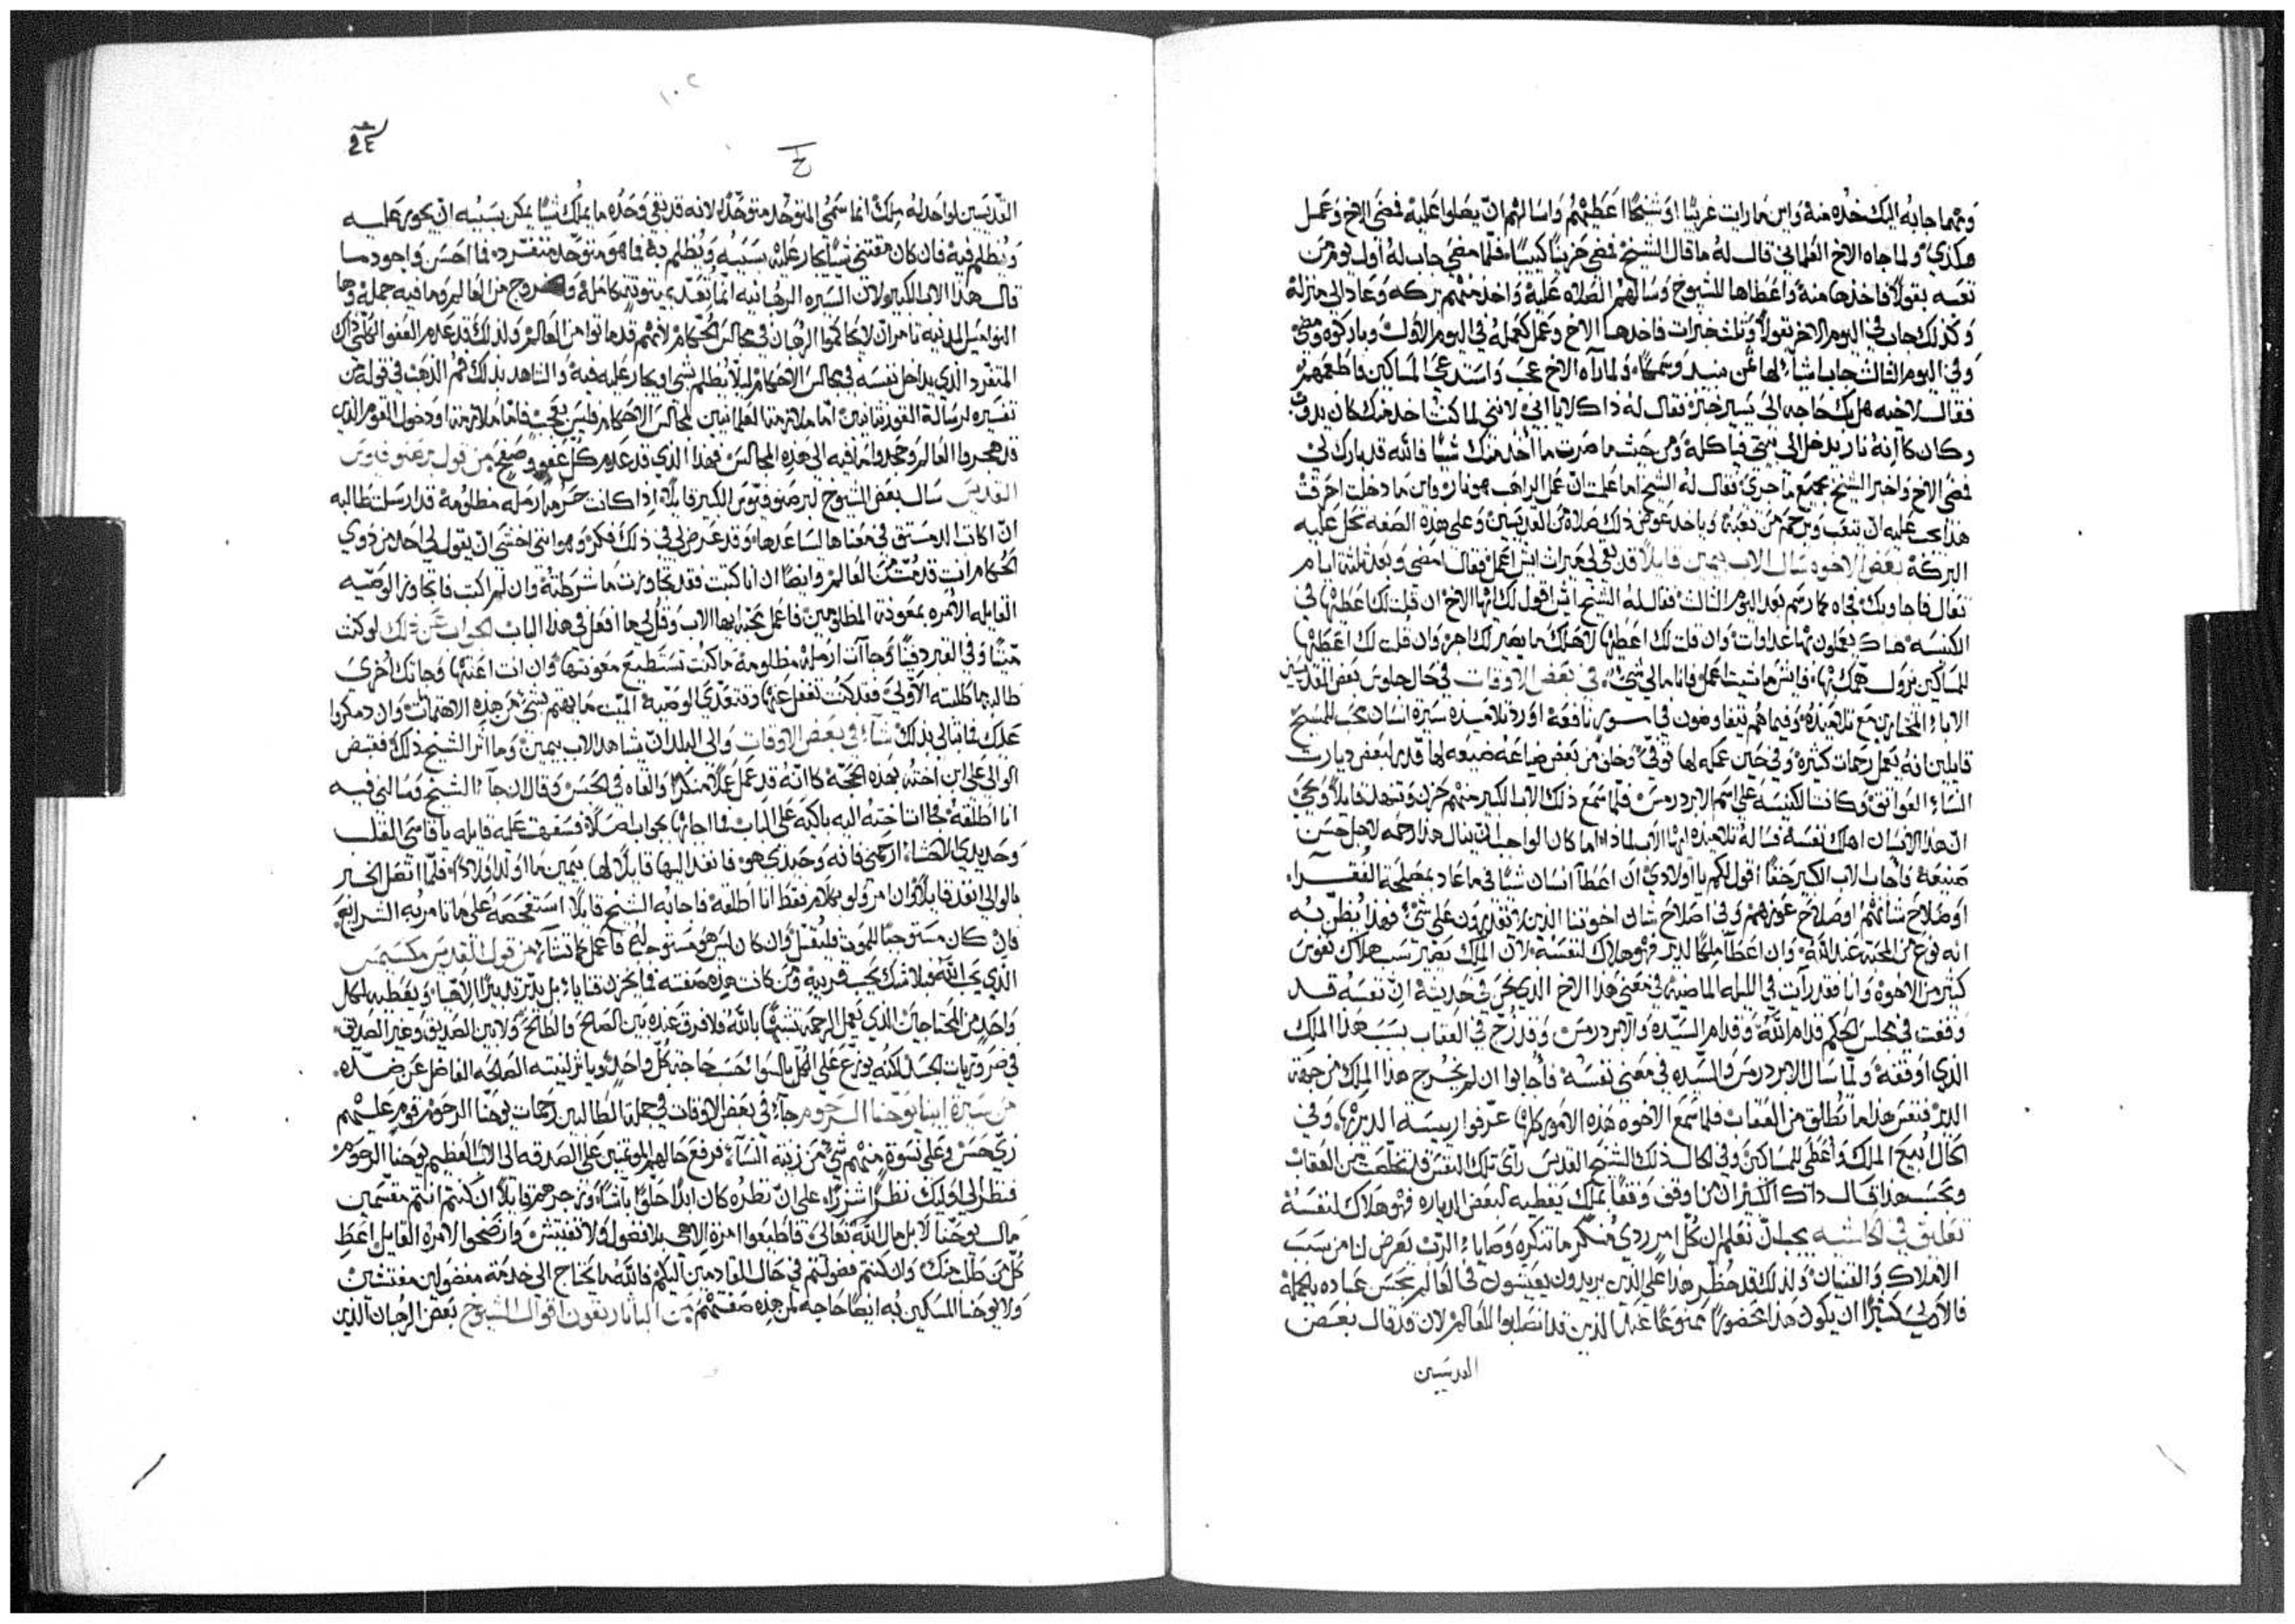 ومهما جابه اليك خذه منه واين ما رايت غريبًا او شيخًا اعطيهم واسالهم ان يصلوا عليه فمضى الاخ وعمل
هكذي ولما جاه الاخ العلماني قال له ما قال الشيخ فمضى حزينًا كيبًا فلما مضى جاب له اول يوم من
تعبه بقولًا فاخذها منه واعطاها للشيوخ وسالهم الصلاه عليه واخذ منهم بركه وعاد الى منزله
وكذلك جاب في اليوم الاخر بقولًا وثلث خبزات فاخدها الاخ وعمل كعمله في اليوم الاول وباركوه ومضى
وفي اليوم الثالث جاب اشيآء لها ثمن ونبيد وسمكًا ولما رآه الاخ عجب واستدعى المساكين فاطعمهم
فقال لاخيه هل بك حاجه الى يسير خبز فقال له ذاك لا يا ابي لانني لما كنت اخذ منك كان يدوب
وكان كانه نار يدخل الى بيتي فياكله ومن حيث ما صرت ما آخذ منك شيًا فالله قد بارك لي
فمضى الاخ واخبر الشيخ بجميع ما جرى فقال له الشيخ اما علمت ان عمل الراهب هو نار واين ما دخلت احرقت
هذا يجب عليه ان يتعب ويرحم من تعبه وياخد عوض ذلك صلاة من القديسين وعلى هذه الصفه تحل عليه
البركة بعض الاخوه سال الاب بيمين قايلًا قد بقى لي ميراث ايش اعمل فقال امضى وبعد ثلثة ايام
تعال فاجاوبك فجاه كما رسم بعد اليوم الثالث فقال له الشيخ ايش اقول لك ايها الاخ ان قلت لك اعطيها في
الكنيسه هناك يعملون بها غداوات وان قلت لك اعطيها لاهلك ما يصير لك اجر وان قلت لك اعطيها
للمساكين نزول همك بها فايش ما شيت اعمل فانا ما لي شيء في بعض الاوقات في حال جلوس بعض القديسين
الاباء المختارين مع تلاميذه وفيما هم يتفاوضون في امور نافعة اورد تلاميذه سيرة انسان محب للمسيح
قايلين انه يعمل رحمات كثيره وفي حين عمله لها توفي وخلى من بعض ضياعه ضيعه لها قدر لبعض ديارت
النساء العواتق وكانت الكنيسه على اسم الابردرمس فلما سمع ذلك الاب الكبير منهم حزن وتنهد قايلًا ويحي
ان هذا الانسان اهلك نفسه فساله تلاميذه ايها الاب لماذا اما كان الواجب ان ينال هذا رحمه لاجل حسن
صنيعه فاجاب الاب الكبير حقًا اقول لكم يا اولادي ان اعطا انسان شيًا في ما عاد بمصلحة الفقراء
او صلاح شانهم او صلاح عوزهم وفي اصلاح شان اخوتنا الذين لا يقدرون على شيء فهذا يُظن به
انه نوع من المحبة عند الله وان اعطا ملكًا لدير فهو هلاك لنفسه لان الملك يصير سبب هلاك نفوس
كثير من الاخوه وانا فقد رآت في الليله الماضية في معنى هذا الاخ الذي نحن في حديثه ان نفسه قد
وقفت في مجلس الحكم قدام الله وقدام السيده والابردرمس وقد زج في العقاب بسبب هذا الملك
الذي اوقفه ولما سال الابردرمس والسيده في معنى نفسه فاجابوا ان لم يخرج هذا الملك من جهة
الدير فنفس هذا ما تُطلق من العقاب فلما سمع الاخوه هذه الامور كلها عرفوا رييسة الدير بها وفي
الحال ابيع الملك واعطي للمساكين وفي الحال ذلك الشيخ القديس رأى تلك النفس قد تخلصت من العقاب
وبحسب هذا قال ذاك الكبير ان من اوقف وقفًا بملك يعطيه لبعض الدياره فهو هلاك لنفسه
تعليق في الحاشيه يجب ان تعلم ان كل امر ردي منكر ما تذكره وصاياء الرب يعرض لنا من سبب
الاملاك والقنيان ولذلك قد حُظر هذا على الذين يريدون يعيشون في العالم بحسن عباده بالجملة
فالاولى كثيرًا ان يكون هذا محضورًا ممنوعًا عند الذين قد انصلبوا للعالم لان قد قال بعض
القديسين
١٠٢
القديسين لواحد له ملك انما سمي المتوحد متوحدًا لانه قد بقي وحده ما يملك شيًا يمكن بسببه ان يجور عليه
ويُظلم فيه فان كان مقتني شيًا يجار عليه بسببه ويُظلم به فما هو متوحد منفرد فما احسن واجود ما
قال هذا الاب الكبير لان السيره الرهبانيه انما تُعدّى بتوبة كامله والخروج من العالم وما فيه جملة وها
النواميس المدنيه تامر ان لا يحاكموا الرهبان في مجالس الحكام لانهم قد ماتوا من العالم ولذلك قد عدم العفو الكلي ذاك
المنفرد الذي يداخل نفسه في مجالس الاحكام ليلا يُظلم بشيء او يجار عليه فيه والشاهد بذلك فم الذهب في قوله من
تفسيره لرسالة القورنتانيين اما ملازمة العلمانيين لمجالس الاحكام فليس بعجب فاما ملازمة او دخول القوم الذين
قد هجروا العالم وجحدوا ما فيه الى هذه المجالس فهذا الذي قد عدم كل عفو وصفح من قول برصنوفيوس
القديس سال بعض الشيوخ لبرصنوفيوس الكبير قايلًا اذا كانت حرمه ارمله مظلومة قد ارسلت تطالبه
ان اكاتب الدمستق في معناها لساعدها وقد عرض لي في ذلك فكر وهو انني اخشى ان يقول لي احد من ذوي
الحكام انت قد مُت من العالم وايضًا ان انا كتبت فقد تجاوزت ما شرطته وان لم اكتب فاتجاوز الوصيه
القايله الآمره بمعونة المظلومين فاعمل محبة ايها الاب وقل لي ما افعل في هذا الباب الجواب عن ذلك لو كنت
ميتًا وفي القبر دفينًا وجآات ارمله مظلومة ما كنت تستطيع معونتها وان انت اعنتها وجاتك اخرى
طالبه ما طلبته الاولى فقد كنت تغفل عنها وتتعدى الوصية الميت ما يهتم بشيء من هذه الاهتمامات وان دمكروا
عليك فما تبالي بذلك شاء في بعض الاوقات والي البلد ان يشاهد الاب بيمين وما آثر الشيخ ذلك فقبض
الوالي على ابن اخته بهذه الحجة كانه قد عمل عملًا منكرًا والقاه في الحبس وقال ان جآء الشيخ وسالني فيه
انا اطلقه فجاات اخته اليه باكيه على الباب فما اجابها بجواب اصلًا فسفهت عليه قايله يا قاسي القلب
وحديدي الاحشاء ارحمني فانه وحيدي هو فانفذ اليها قايلًا لها بيمين ما اولد اولادًا فلما اتصل الخبر
بالوالي انفذ قايلًا وان امر ولو بكلام فقط انا اطلقه فاجابه الشيخ قايلًا استفحصه على ما تامر به الشرايع
فان كان مستوجبًا للموت فليقتل وان كان ليس هو مستوجبه فاعمل كما تشاء من قول القديس مكسيمس
الذي يحب الله فبلا شك يحب قريبه ومن كانت هذه صفته فما يخزن قنايا بل يدبر تدبيرًا الاهيا ويعطيه لكل
واحد من المحتاجين الذي يعمل الرحمة تشبهًا بالله فلا فرق عنده بين الصالح والطالح ولا بين الصديق وغير الصديق
في ضروريات الجسد لكنه يوزع على الكل بالسوا بحسب حاجة كل واحد ويآثر لنيته الصالحه الفاضل عن ضده
من سيرة ابينا يوحنا الرحوم جآء في بعض الاوقات في جملة الطالبين رحمات يوحنا الرحوم قوم عليهم
زي حسن وعلى نسوة منهم شيء من زينة النساء فرفع حالهم الموتمنين على الصدقه الى الاب العظيم يوحنا الرحوم
فنظر الى اوليك نظرًا شزرًا على ان نظره كان ابدًا حلوًا باشًا وزجرهم قايلًا ان كنتم انتم مقسمين
مال يوحنا لا بل مال الله تعالى فاطيعوا امره الاهي بلا فضول ولا تفتيش وانضحوا لامره القايل اعطِ
كل من طلب منك وان كنتم فضولتم في حال القادمين اليكم فالله ما يحتاج الى خدمة مفضولين مفتشين
ولا يوحنا المسكين به ايضًا حاجه لمن هذه صفتهم من الباناريقون اقوال الشيوخ بعض الرهبان الذين